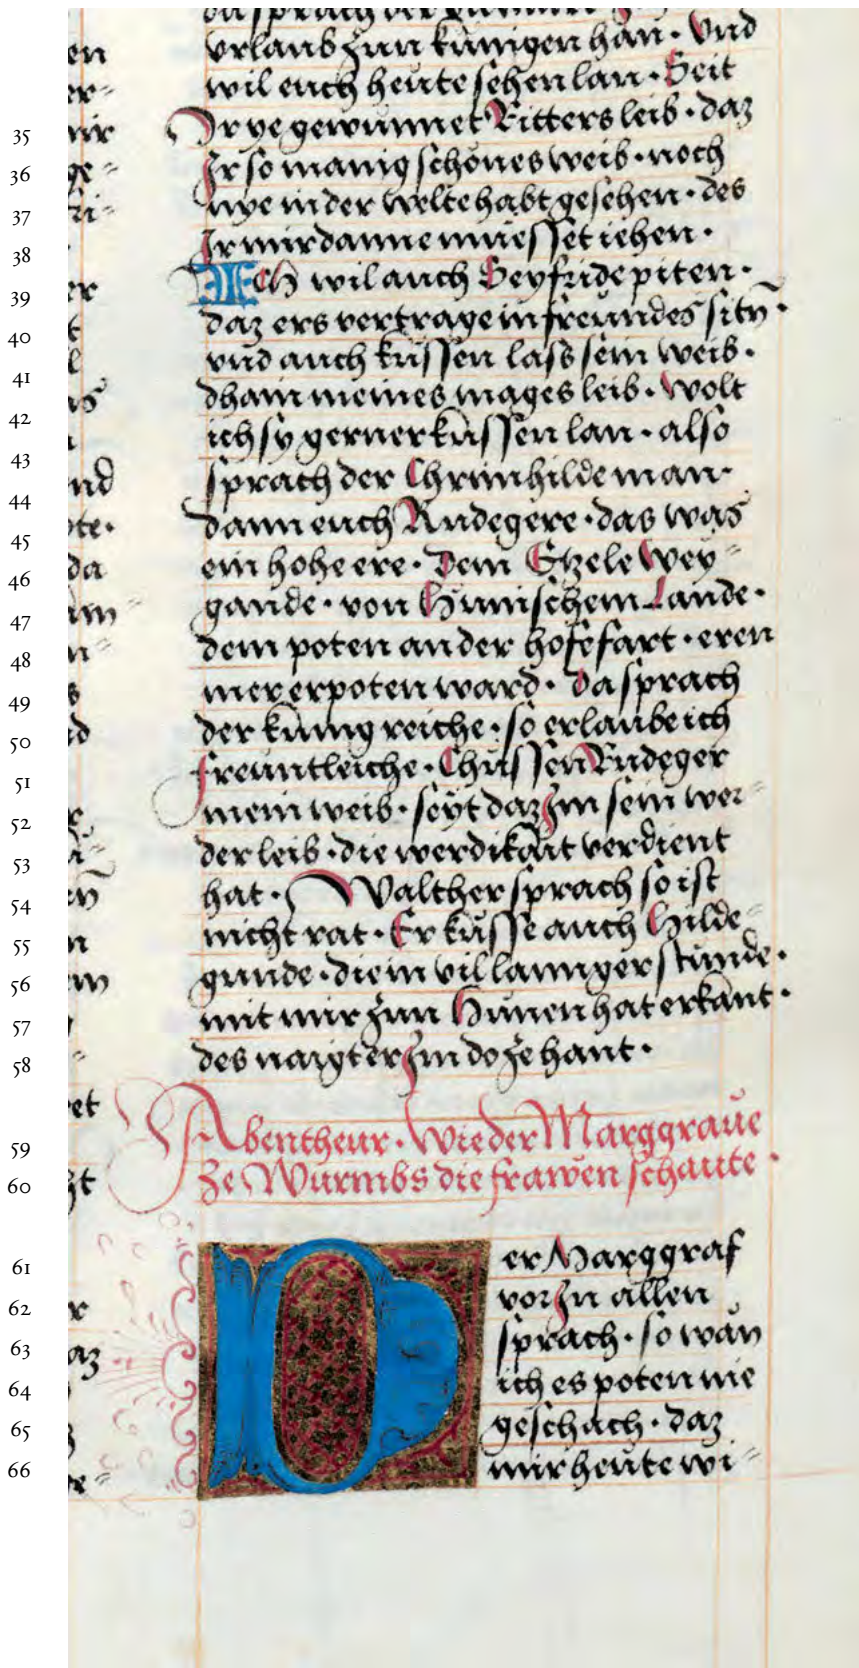 vrlaub zun künigen han · Vnd
wil euch heute sehen lan · Seit
35 Ir ye gewunnet Ritters leib · daz
36 Ir so manig schönes weib · noch
37 nye in der welte habt gesehen · des
38 Ir mir danne müesset iehen ·
39 ICH wil auch Seyfride piten ·
40 daz ers vertrage in freundes sitn̄ ·
41 vnd auch küssen lass sein weib ·
42 dhain meines mages leib · wolt
43 ich sy gerner küssen lan · also
sprach der Chrimhilde man ·
44 dann euch Rudegere · das was
45 ein hohe ere · Dem Etzele Wey⸗
46 gande · von Hunischem Lande ·
47 dem poten an der hofefart · eren
48 mer erpoten ward · Da sprach
49 der künig reiche · so erlaube ich
50 freuntleiche · Chüssen Rudeger
51 mein weib · seyt daz Im sein wer⸗
52 der leib · die werdikait verdient
53 hat · Walther sprach so ist
54 nicht rat · Er küsse auch Hilde⸗
55 gunde · die in vil lannger stunde ·
56 mit mir zun Hunen hat erkant ·
57 des naigt er Im do ze hant ·
58
59 Abentheur · Wie der Marggraue
60 Ze Wurmbs die frawen schaute ·
61 Der Marggraf
62 vor In allen
63 sprach · so wän
64 ich es poten nie
65 geschach · daz
66 mir heute wi⸗